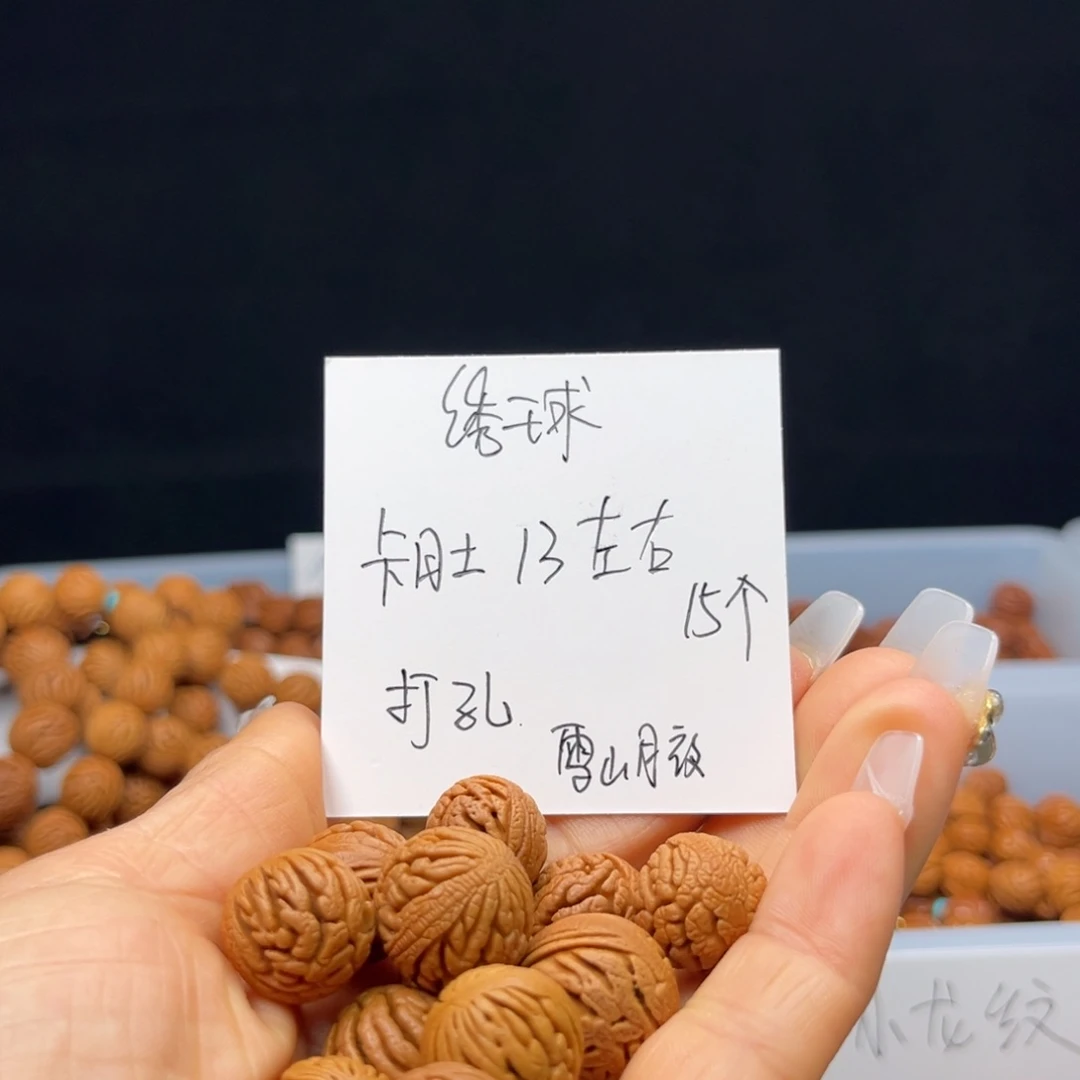 绣球
卡肚 13左右
15个
打孔
雪山月
小龙纹